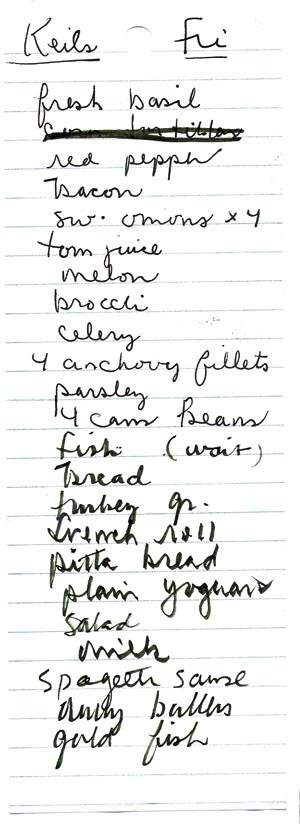 Keils Fri
fresh basil
red pepper
bacon
sw. onions x 4
tom juice
melon
broccli
celery
4 anchovy fillets
parsley
4 cans Beans
fish (wait)
bread
turkey gr.
french roll
pitta bread
plain yoguart
salad
milk
spagetti sause
gold fish